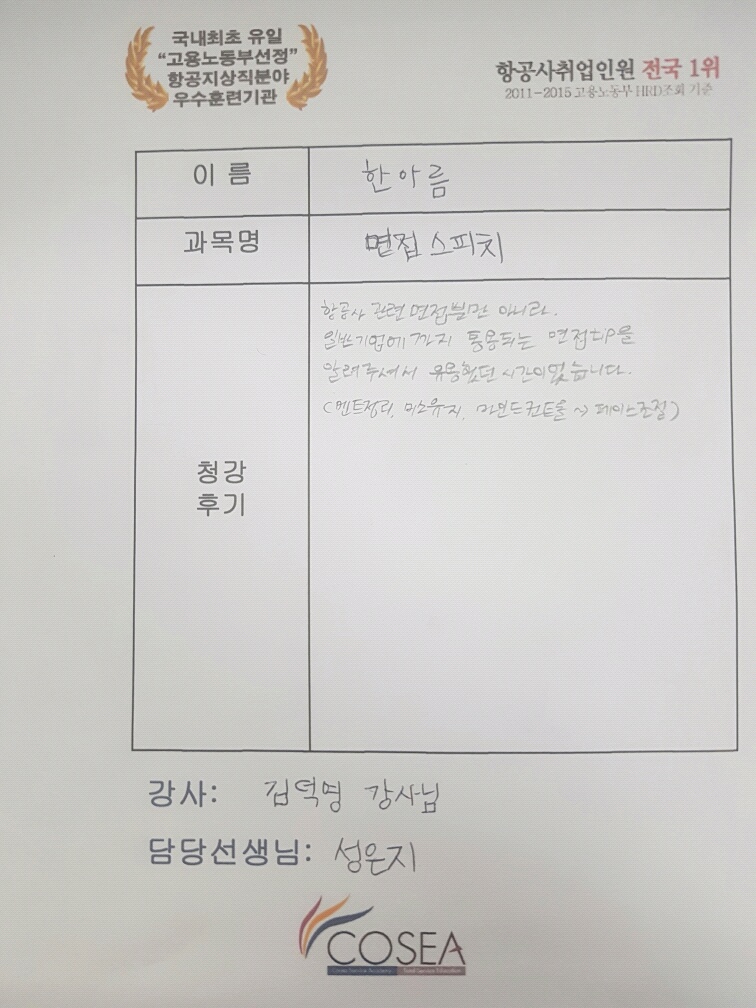 국내최초 유일
"고용노동부선정"
항공지상직분야
우수훈련기관
항공사취업인원 전국 1위
2011-2015 고용노동부 HRD조회 기준
이 름
한아름
과목명
면접스피치
항공사 관련 면접뿐만 아니라.
일반기업에까지 통용되는 면접tip을
알려주셔서 유용했던 시간이었습니다.
(멘트정리, 미소유지, 마인드컨트롤 ~> 페이스조절)
청강
후기
강사: 김덕명 강사님
담당선생님: 성은지
COSEA